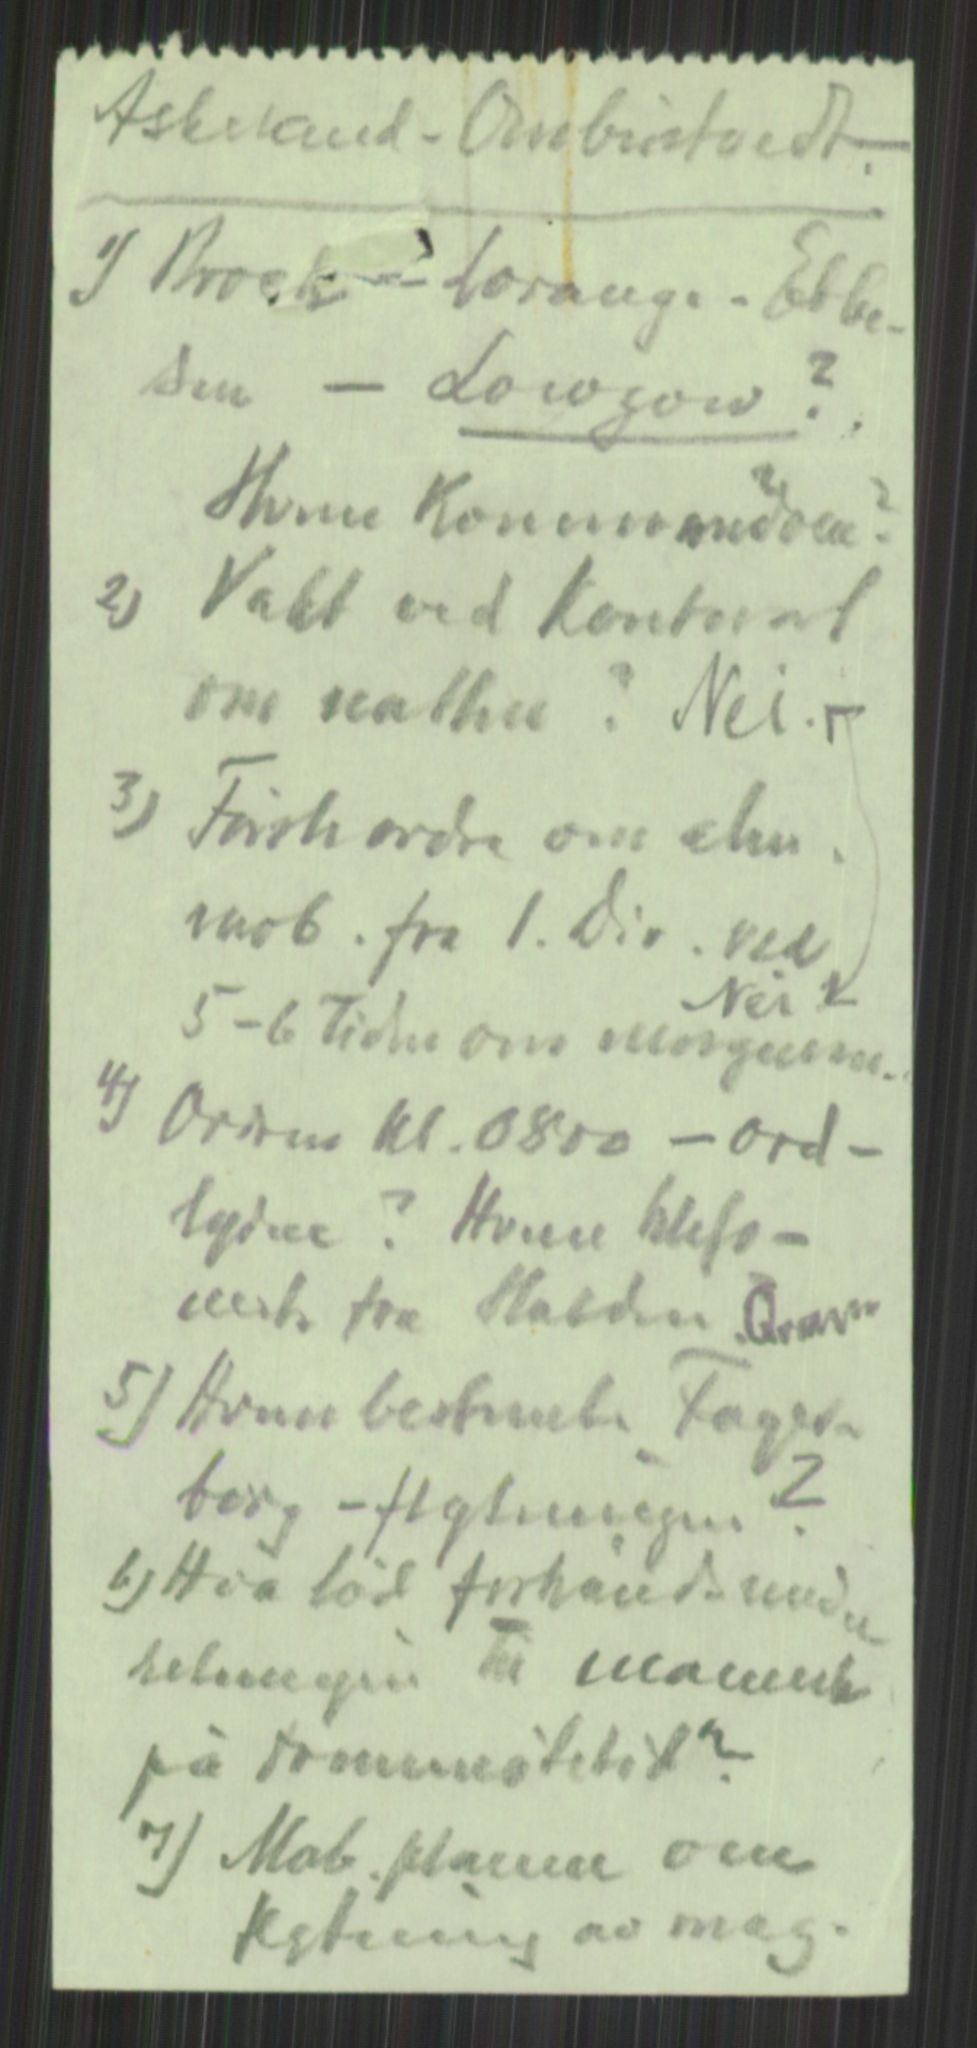 Askelund - Ombustvedt.
1) Broch - Lorange - Ebbe-
sen - Lowzow?
Hvem Kommandoen?
2) Vakt ved Kontoret
om natten? Nei.
3) Første ordre om alm.
mob. fra 1. Div. ved
5-6 Tiden om morgenen. Nei
4) Ordren kl. 0800 - ord-
lydene? Hvem telefo-
nerte fra Halden.
5) Hvem bestemte Fager-
borg - flytningen?
6) Hva lød forhåndsmed
delingen til mannsk
på dommøtetid?
7) Mob. planen om
flytning av mag.